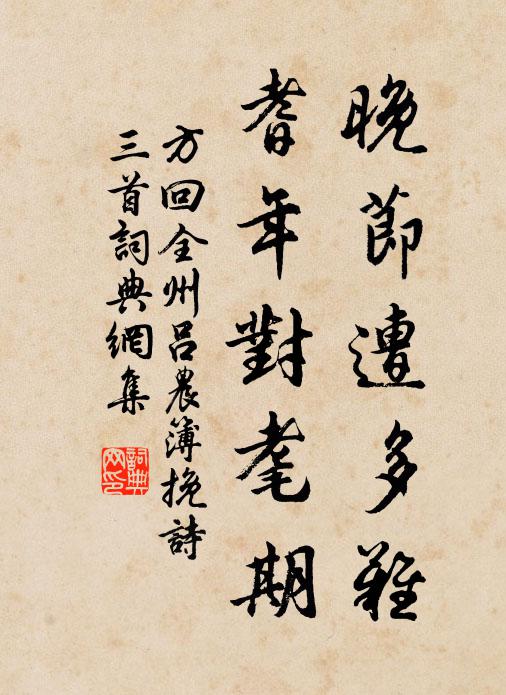 晚節遭多難
耆年對耄期
方回全州呂農簿挽詩
三首詞典網集
詞典網印